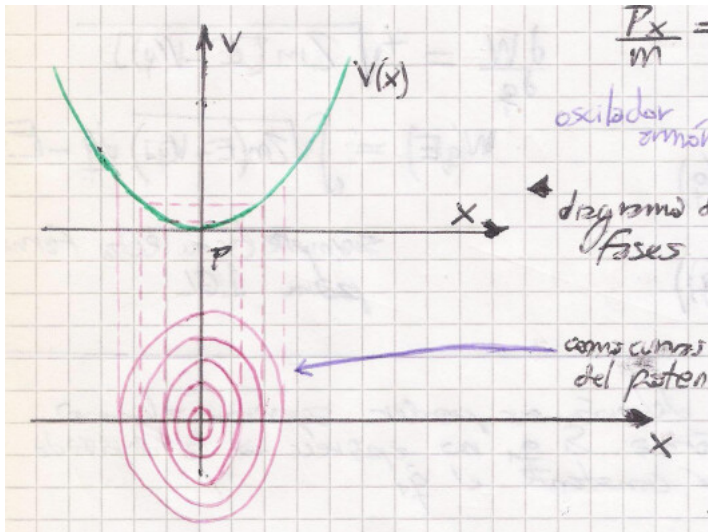 V
V(x)
X
P
X
Px/m =
oscilador
armón
diagrama d
fases
como curvas
del poten